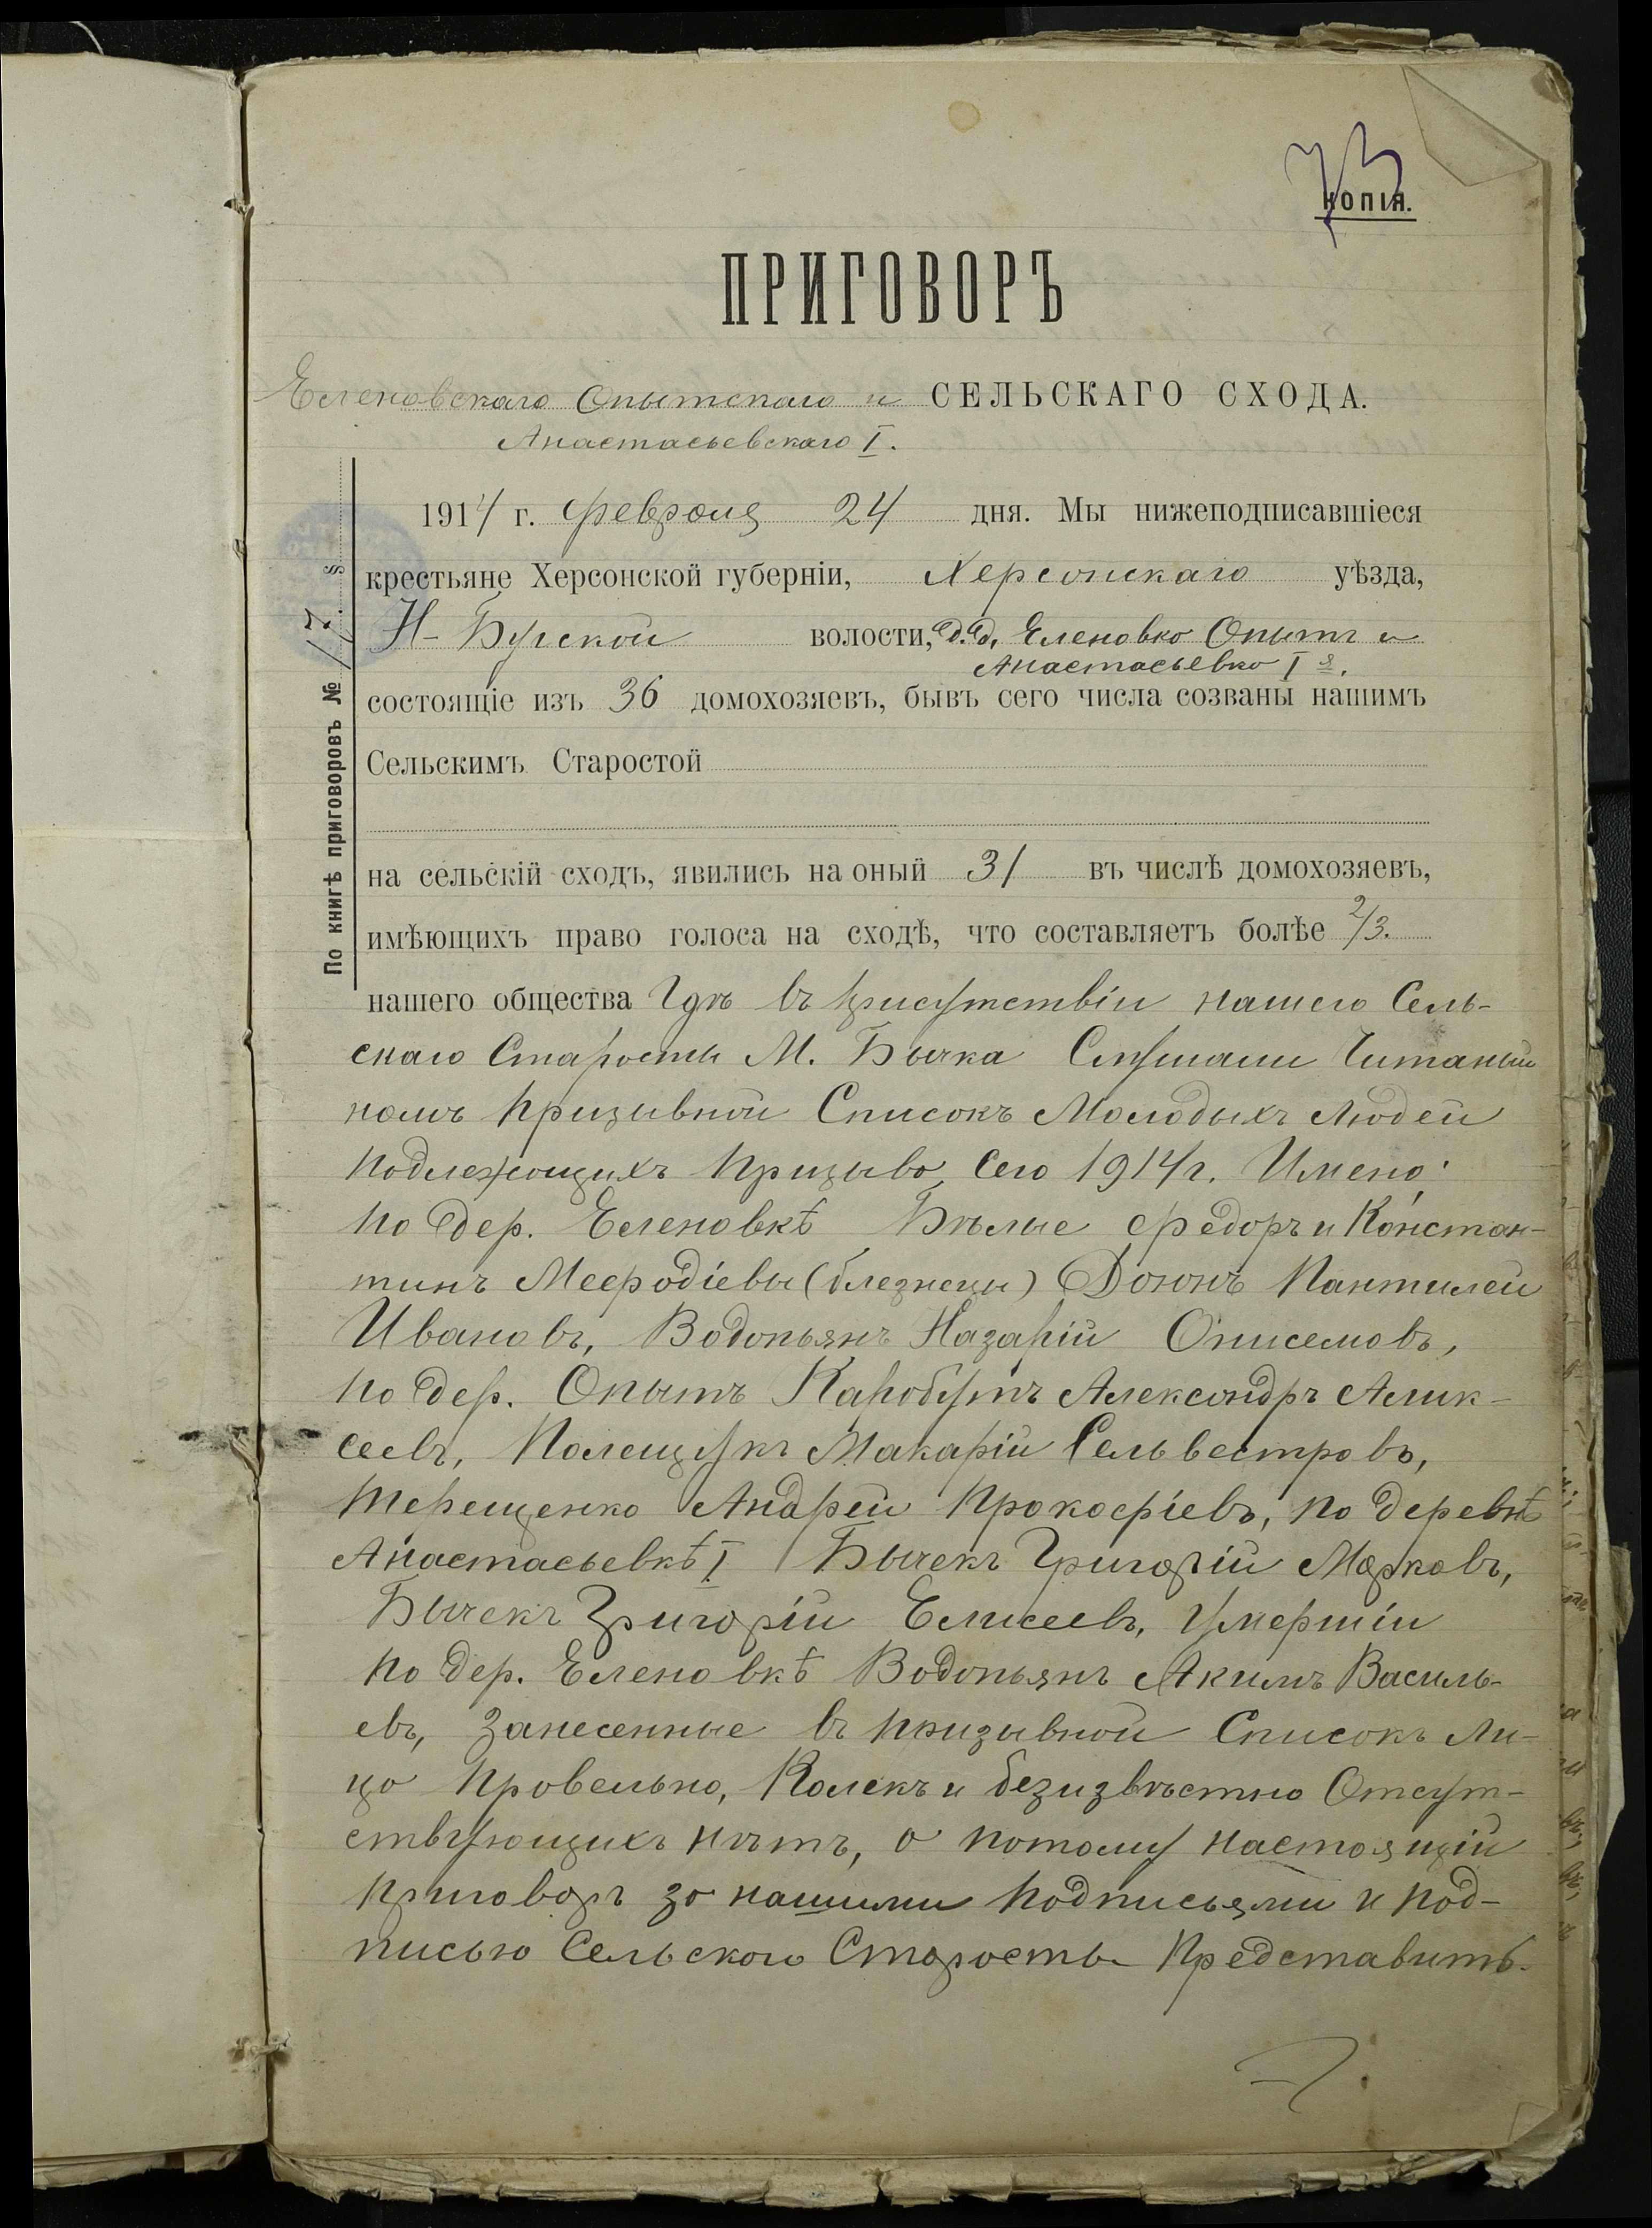 73
КОПІЯ.
ПРИГОВОРЪ
Еленовскаго Опытскаго и СЕЛЬСКАГО СХОДА.
Анастасьевскаго I.
По книгѣ приговоровъ № 17. §
1914 г. Февраля 24 дня. Мы нижеподписавшіеся
крестьяне Херсонской губерніи, Херсонскаго уѣзда,
Н-Бугской волости, д.д. Еленовка Опытъ и
Анастасьевка I я.
состоящіе изъ 36 домохозяевъ, бывъ сего числа созваны нашимъ
Сельскимъ Старостой
на сельскій сходъ, явились на оный 31 въ числѣ домохозяевъ,
имѣющихъ право голоса на сходѣ, что составляетъ болѣе 2/3.
нашего общества Гдѣ въ присутствіи нашего Сель-
скаго Старосты М. Бычка Слушали Читаный
намъ призывной Списокъ Молодыхъ Людей
подлежющихъ призыва сего 1914 г. Имено:
по дер. Еленовкѣ Бѣлые Федоръ и Констан-
тинъ Мефодіевы (близнецы) Доюнъ Пантилей
Ивановъ, Водопьянъ Назарій Онисемовъ,
по дер. Опытъ Каробутъ Александръ Алик-
сеевъ, Полещукъ Макарій Сельвестровъ,
Терещенко Андрей Прокофіевъ, по деревнѣ
Анастасьевкѣ I Бычекъ Григорій Марковъ,
Бычекъ Григорій Елисеевъ, Умершій
по дер. Еленовкѣ Водопьянъ Акимъ Василь-
евъ, Занесенные въ призывной Списокъ Ли-
ца Провельно, Колекъ и безизвѣстно Отсут-
ствующихъ нѣтъ, а потому настоящій
приговоръ за нашими подписьями и под-
писью Сельскаго Старосты Представить